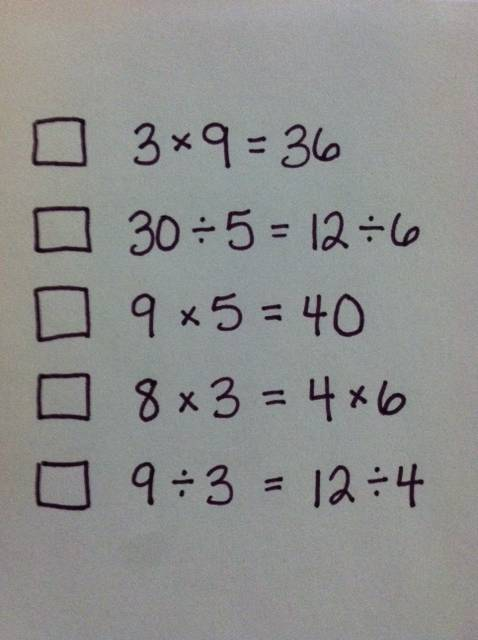 3 × 9 = 36
30 ÷ 5 = 12 ÷ 6
9 × 5 = 40
8 × 3 = 4 × 6
9 ÷ 3 = 12 ÷ 4